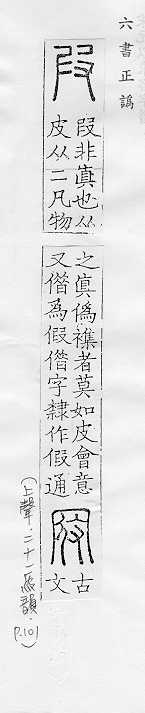 六書正譌
叚非眞也从
皮从二凡物
之眞僞襍者莫如皮會意
又借爲假借字隸作假通
古
文
(上聲·二十一馬韻·
P.101)